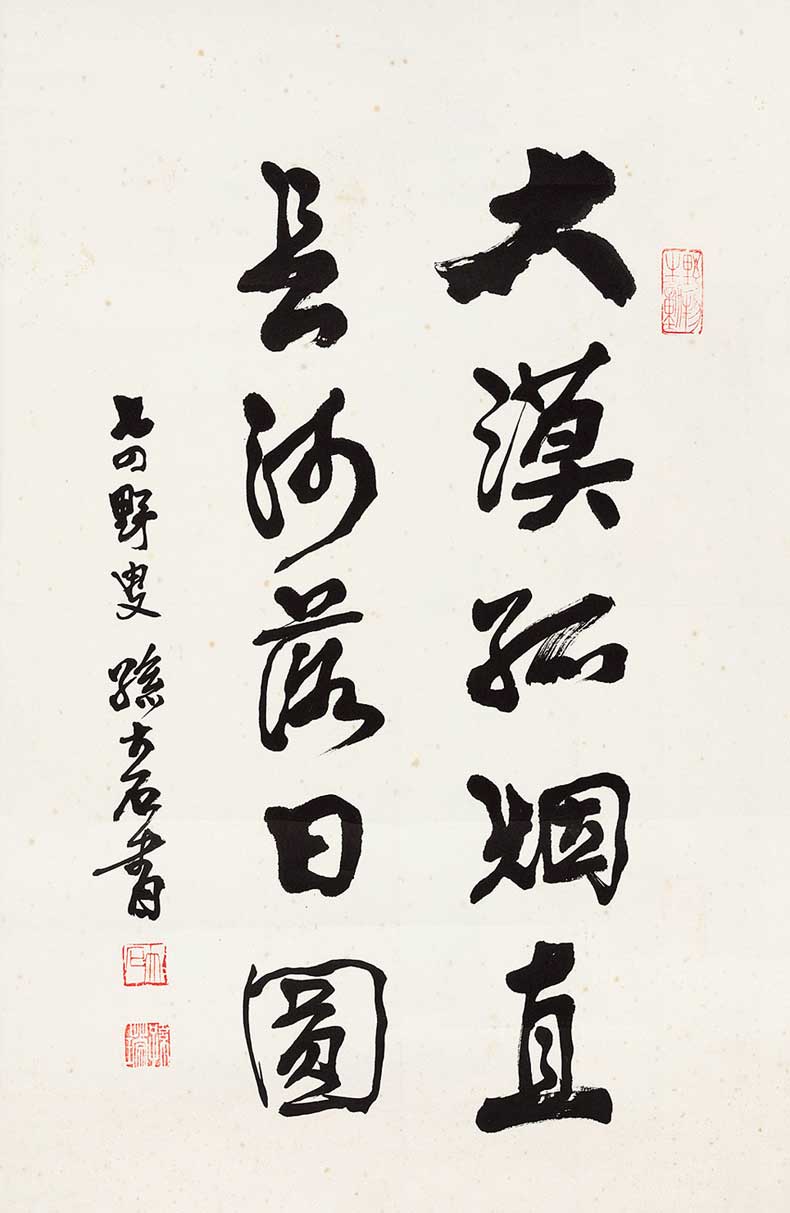 大漠孤烟直
長河落日圓
七四野叟 孫大石書
大石